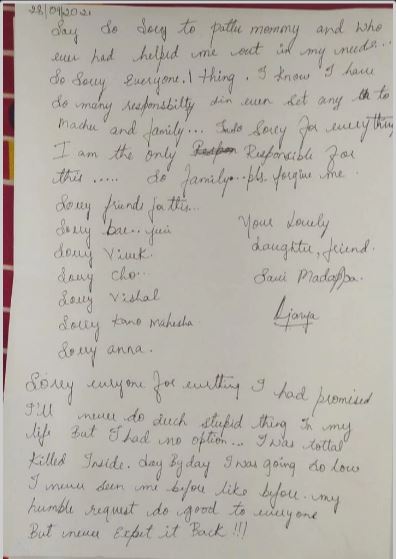 28/09/2021
Say So Sorry to pattu mommy and who
ever had helped me out in my needs...
So Sorry everyone. 1 thing. I know I have
So many responsbilty in even let any to
Machu and family... Sorry for everything
I am the only Responsible For
this ..... So family.. pls. forgive me.
Sorry friends for this...
Sorry bae..
Sorry Vivek.
Sorry Cho..
Sorry Vishal
Sorry Mahesha
Sorry anna.
Your Lovely
daughter, friend.
Savi Madappa.
Sorry everyone for everthing I had promised
I'll never do such stupid thing In my
life But I had no option... I was tottal
Killed Inside. day By day I was going So low
I never seen me before like before. my
humble request do good to everyone
But never Expet it Back !!!